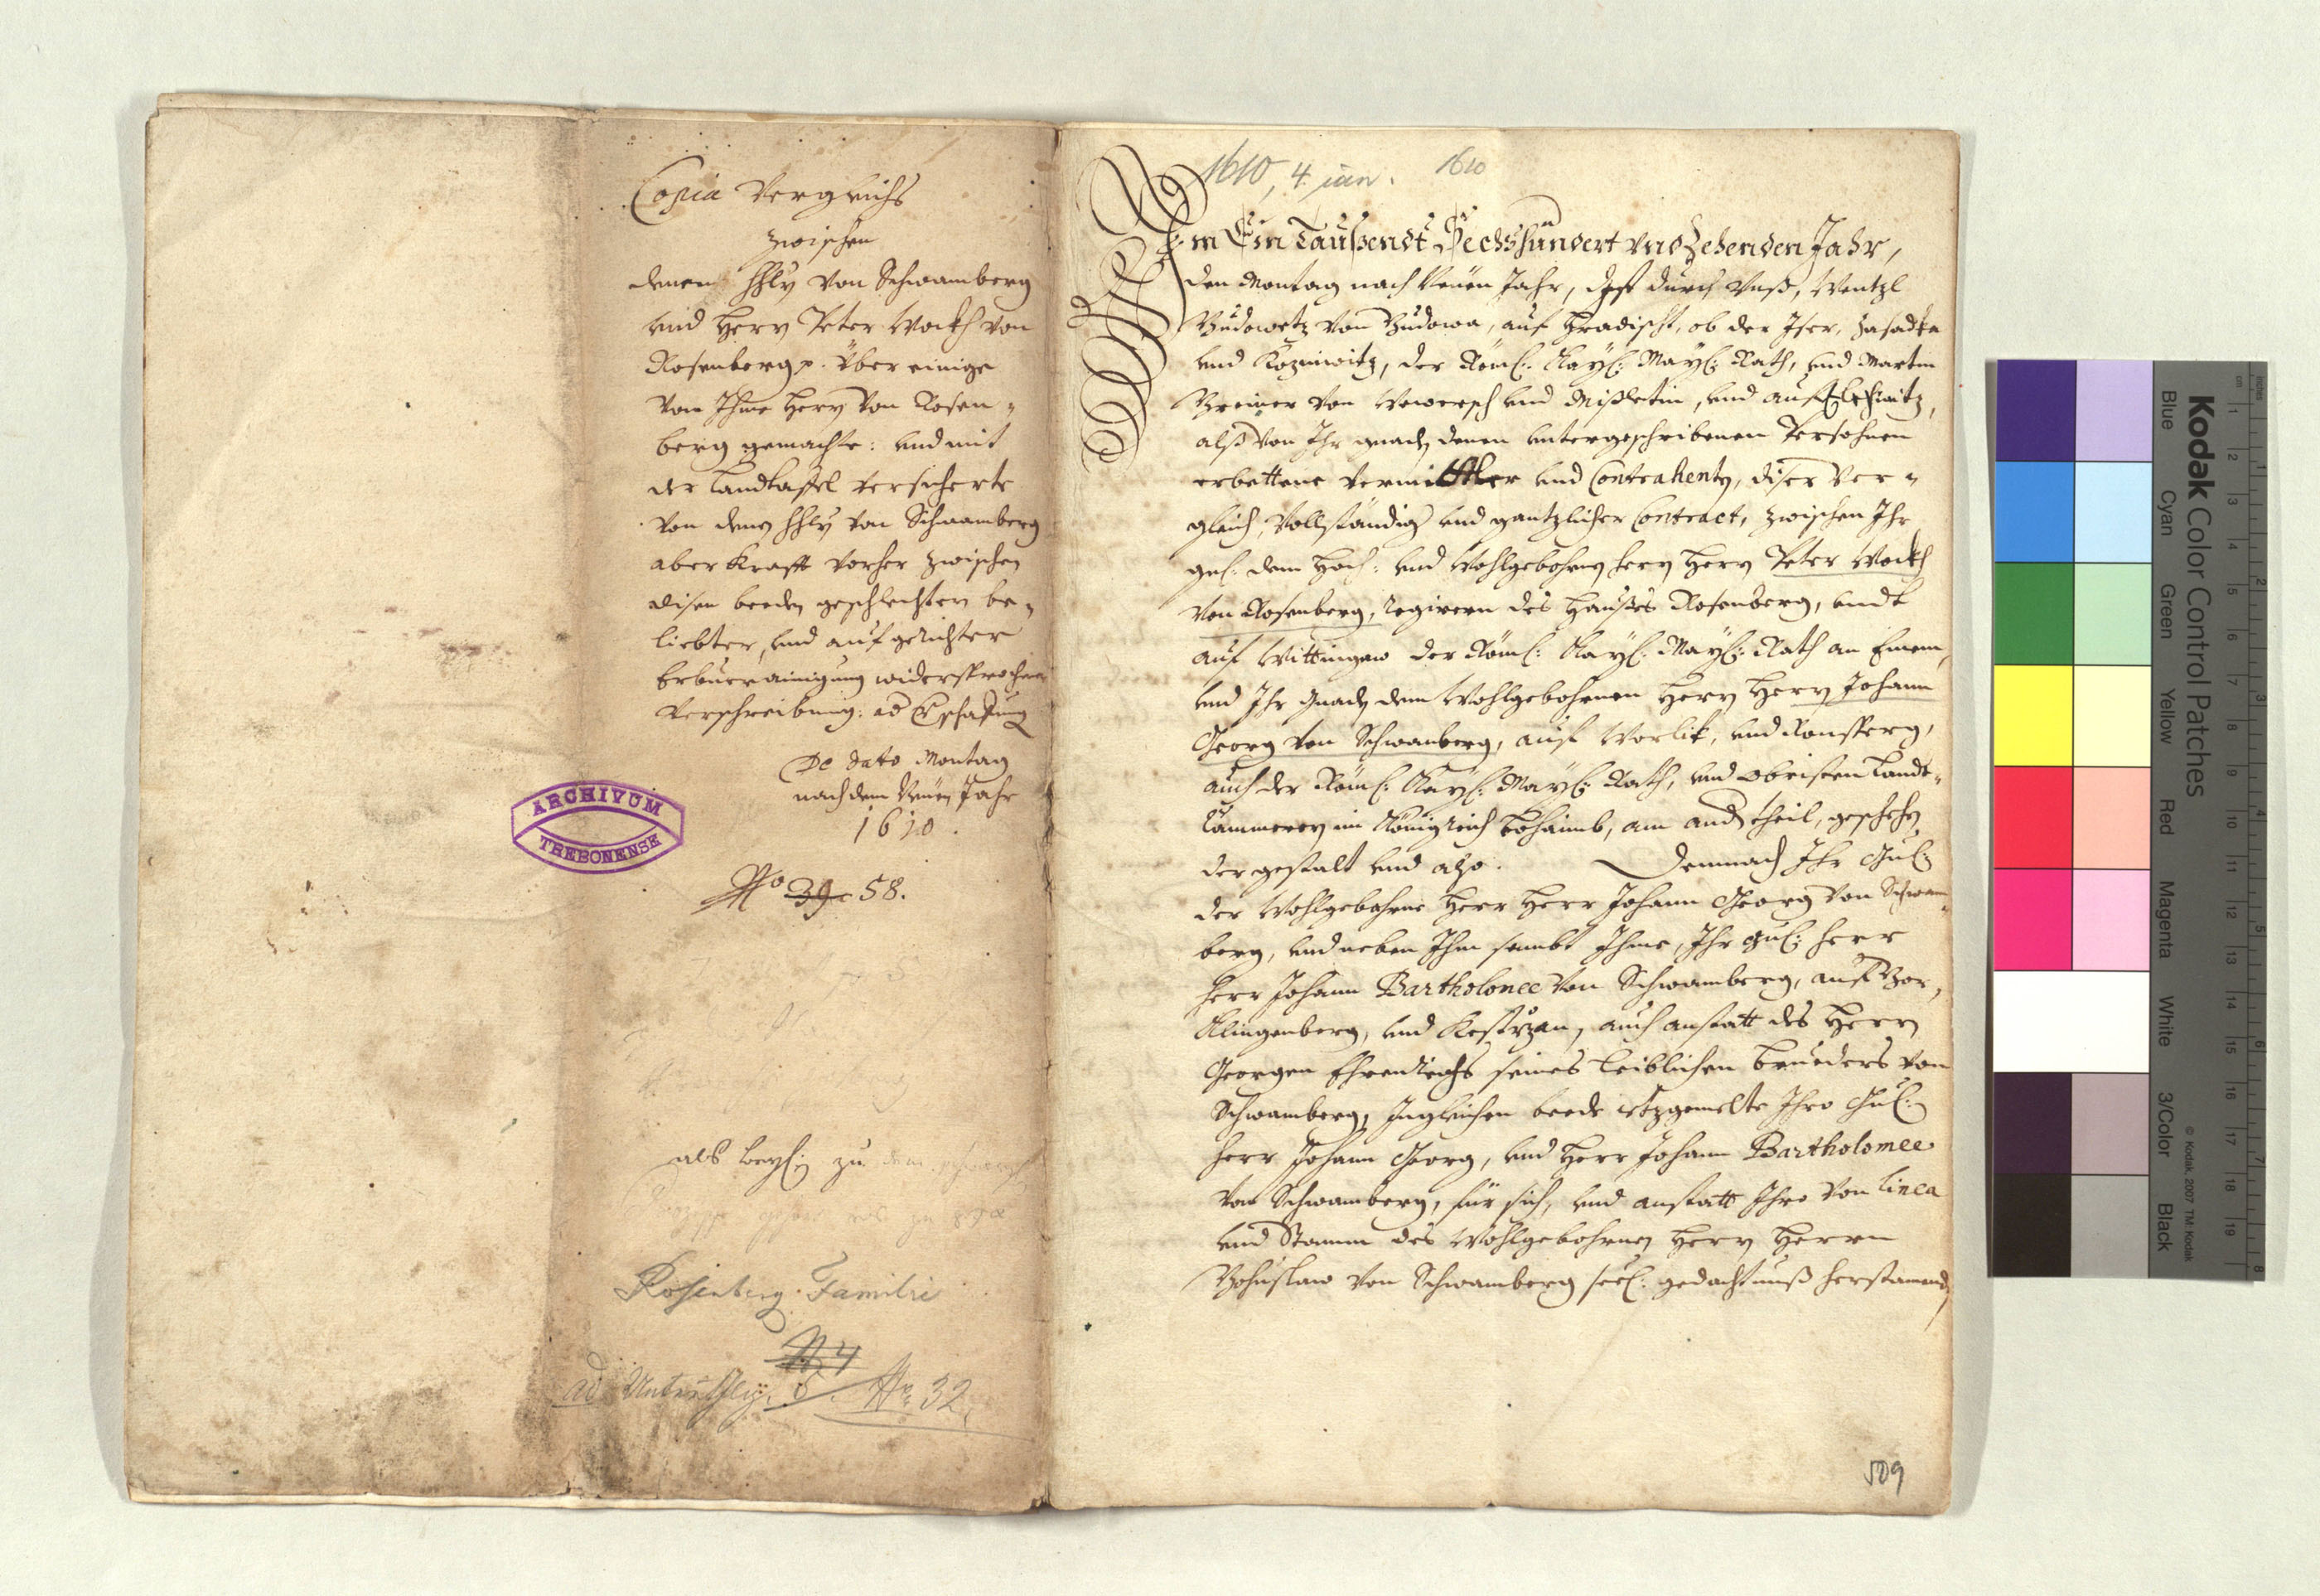 Copia Vergleichs
zwischen
denen HHln von Schwamberg
und Herrn Peter Wockh von
Rosenberg p. über einige
von Ihme Herrn von Rosen-
berg gemachte: und mit
der Landtaffel versicherte
von denen HHln von Schwamberg
aber krafft vorher zwischen
disen beeden geschlechtern be-
liebter, und aufgerichter
Erbvereinigung widersprochene
Verschreibung:
De dato Montag
nach dem Neuen Jahr
1610.
No 39. 58.
ARCHIVUM
TREBONENSE
als beyl: zu
Rosenberg. Familie
No 4
ad No 32.
1610, 4 jan. 1610
Im Ein Taußendt Sechshundert und Zehenden Jahr,
den Montag nach Neuen Jahr, Ist durch Unß, Wentzl
Budowetz von Budowa, auf Hradischt, ob der Iser, Zasadka
und Kozniowitz, der Röm: Kay: May: Rath, und Martin
von und Mißletin, und auf
alß von Ihr gnad, denen untergeschribenen Persohnen
erbettene Vermittler und Contrahenten, diser Ver-
gleich, Vollständig und gantzlicher Contract, zwischen Ihr
gn: dem Hoch: und Wohlgebohrnen Herrn Herrn Peter Wockh
von Rosenberg, Regirern des Haußes Rosenberg, undt
auf Wittingaw der Röm: Kay: May: Rath an Einem,
und Ihr Gnad, dem Wohlgebohrnen Herrn Herrn Johann
Georg von Schwanberg, auf Worlik, und Ronsperg,
auch der Röm: Kay: May: Rath, und Obristen Landt-
Cammerern im Königreich Böhaimb, am andern theil, geschehen,
der gestalt und also. Demnach Ihr Gn:
der Wohlgebohrne Herr Herr Johann Georg von Schwam-
berg, und neben Ihm sambt Ihme, Ihr gn: Herr
Herr Johann Bartholomee von Schwamberg, auf Bor,
Klingenberg, und Kestrzan, auch anstatt des Herrn
Georgen Ehrenreichs seines Leiblichen Brueders von
Schwamberg, Ingleichen beede ietzgemelte Ihro Gn:
Herr Johann Georg, und Herr Johann Bartholomee
von Schwamberg, für sich, und anstatt Ihro von Linea
und Stamm des Wohlgebohrnen Herrn Herrn
Bohuslaw von Schwamberg seel: gedachtnuß herstamend
509
Kodak Color Control Patches
Blue Cyan Green Yellow Red Magenta White 3/Color Black
© Kodak, 2007 TM: Kodak
inches 1 2 3 4 5 6 7 8
cm 1 2 3 4 5 6 7 8 9 10 11 12 13 14 15 16 17 18 19